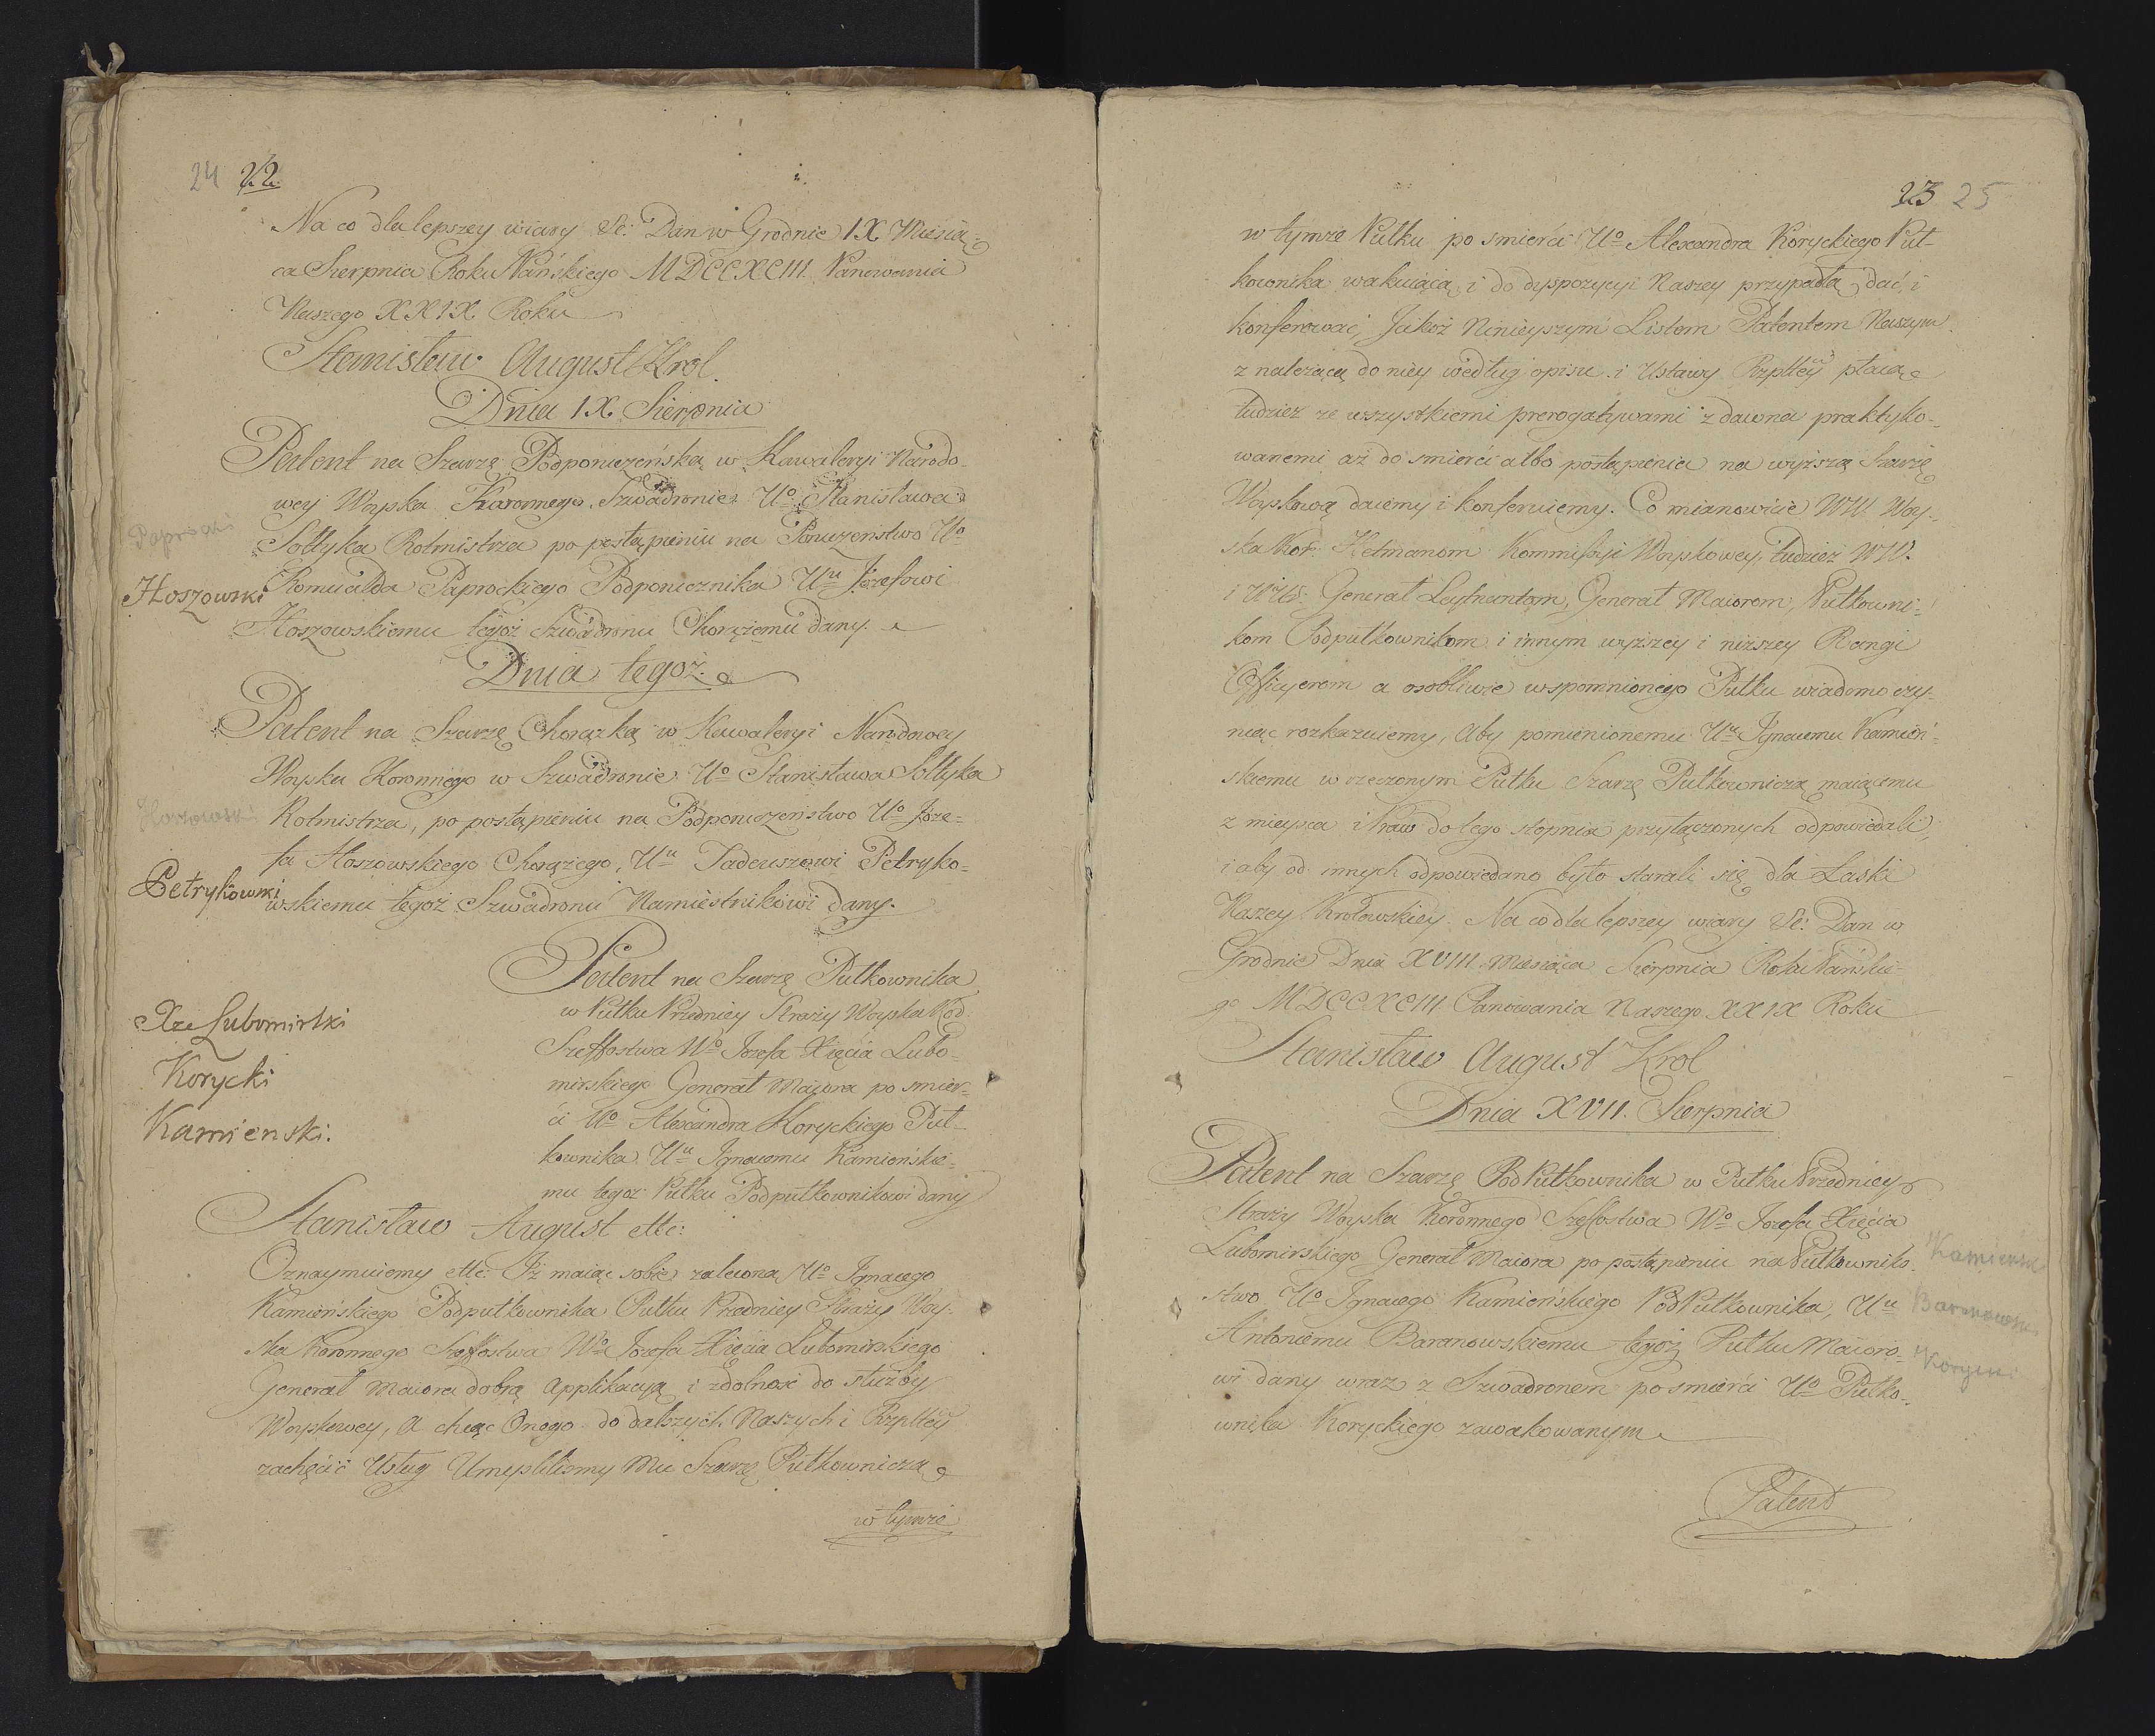 24 22
Na co dla lepszey wiary &c: Dan w Grodnie IX Miesią-
ca Sierpnia Roku Pańskiego MDCCXCIII Panowania
Naszego XXIX Roku
Stanisław August Krol.
Dnia IX Sierpnia
Patent na Szarzę Podporuczeńską w Kawaleryi Narodo-
wey Woyska Koronnego, Szwadronie Uo Stanisława
Sołtyka Rotmistrza po postąpieniu na Poruczenstwo Uo
Paprocki
Romualda Paprockiego Podporucznika Uu Jozefowi
Hoszowski
Hoszowskiemu tegoż Szwadronu Chorążemu dany.
Dnia tegoż
Patent na Szarzę Chorążką w Kawaleryi Narodowey
Woyska Koronnego w Szwadronie Uo Stanisława Sołtyka
Rotmistrza, po postąpieniu na Podporuczeństwo Uo Joze-
Hoszowski
fa Hoszowskiego Chorążego, Uu Tadeuszowi Petryko-
Petrykowski
wskiemu tegoż Szwadronu Namiestnikowi dany.
Patent na Szarzę Pułkownika
w Pułku Przedniey Straży Woyska Kor
Szeffostwa Wo Jozefa Xięcia Lubo-
Xże Lubomirski
mirskiego Generał Maiora po śmier-
Korycki
ci Uo Alexandra Koryckiego Puł-
Kamienski.
kownika Uu Ignacemu Kamieńskie-
mu tegoż Pułku Podpułkownikowi dany
Stanisław August ettc:
Oznaymuiemy ettc: Iż maiąc sobie zaleconą Uo Ignacego
Kamieńskiego Podpułkownika Pułku Przedniey Straży Woy-
ska Koronnego Szeffostwa Wo Jozefa Xięcia Lubomirskiego
Generał Maiora dobrą applikacyą i zdolność do służby
Woyskowey, a chcąc Onego do dalszych Naszych i Rzpltey
zachęcić Usług Umyśliliśmy Mu Szarzę Pułkowniczą
w tymże
23 25
w tymże Pułku po śmierci Uo Alexandra Koryckiego Puł-
kownika wakuiącą i do dyspozycyi Naszey przypadłą dać, i
konferować, Jakoż Ninieyszym Listem Patentem Naszym
z należącą do niey według opisu i Ustawy Rzpltey płacą
tudzież ze wszystkiemi prerogatywami z dawna praktyko-
wanemi aż do śmierci albo postąpienia na wyższą Szarzę
Woyskową daiemy i konferuiemy. Co mianowicie WW. Woy-
ska Kor: Hetmanom Kommissyi Woyskowey, tudzież WW.
i UUr: Generał Leytnantom, Generał Maiorom, Pułkowni-
kom Podpułkownikom i innym wyższey i niższey Rangi
Officyerom a osobliwie wspomnionego Pułku wiadomo czy-
niąc rozkazuiemy, Aby pomienionemu Uu Ignacemu Kamień-
skiemu w rzeczonym Pułku Szarzę Pułkowniczą maiącemu
z mieysca i Praw do tego stopnia przyłączonych odpowiedali,
i aby od innych odpowiedano było starali się dla Łaski
Naszey Krolowskiey. Na co dla lepszey wiary &c: Dan w
Grodnie Dnia XVIII Miesiąca Sierpnia Roku Pańskie-
go MDCCXCIII Panowania Naszego XXIX Roku
Stanisław August Krol
Dnia XVII. Sierpnia
Patent na Szarzę PodPułkownika w Pułku Przedniey
Straży Woyska Koronnego Szeffostwa Wo Jozefa Xięcia
Lubomirskiego Generał Maiora po postąpieniu na Pułkowniko-
Kamieński
stwo Uo Ignacego Kamieńskiego PodPułkownika, Uu
Baranowski
Antoniemu Baranowskiemu tegoż Pułku Maioro-
Korycki
wi dany wraz z Szwadronem po śmierci Uo Pułko-
wnika Koryckiego zawakowanym
Patent